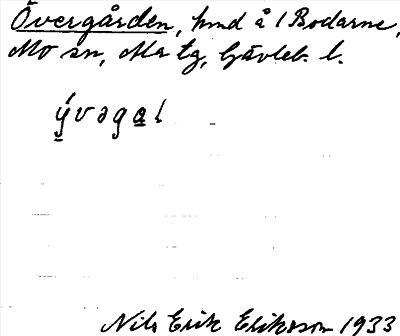 Övergården, hmd å 1 Bodarne,
Mo sn, Ma tg, Gävleb. l.
ývəgaḷ
Nils Erik Eriksson 1933